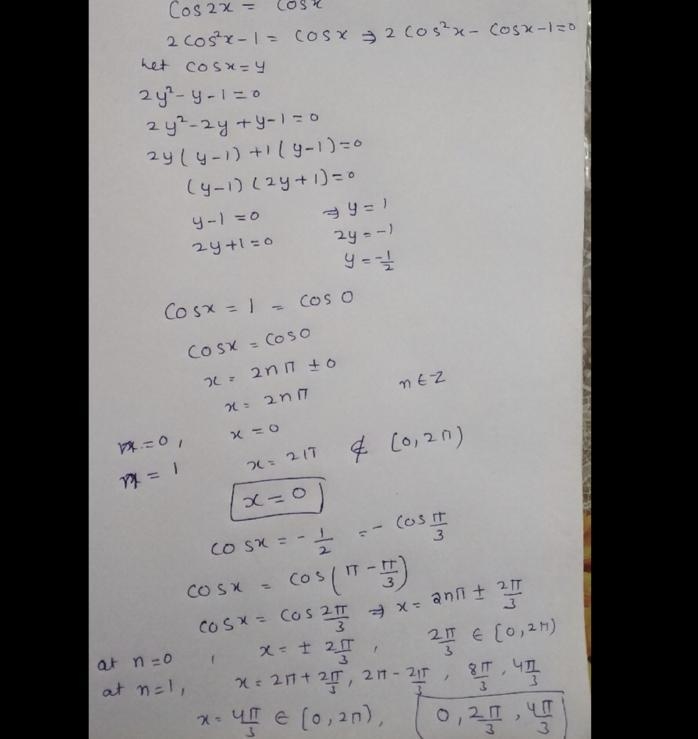 Cos2x = cosx
2cos²x-1 = cosx ⇒ 2cos²x - cosx-1=0
Let cosx=y
2y²-y-1=0
2y²-2y+y-1=0
2y(y-1)+1(y-1)=0
(y-1)(2y+1)=0
y-1=0 ⇒ y=1
2y+1=0 2y=-1
y=-1/2
Cosx = 1 = cos0
Cosx = cos0
x = 2nπ ± 0
x = 2nπ n∈Z
n=0, x=0
n=1 x=2π ∉ [0,2π)
x=0
cosx = -1/2 = -cos π/3
cosx = cos(π-π/3)
cosx = cos 2π/3 ⇒ x = 2nπ ± 2π/3
at n=0, x= ± 2π/3, 2π/3 ∈ [0,2π)
at n=1, x=2π+2π/3, 2π-2π/3, 8π/3, 4π/3
x=4π/3 ∈ [0,2π), 0, 2π/3, 4π/3